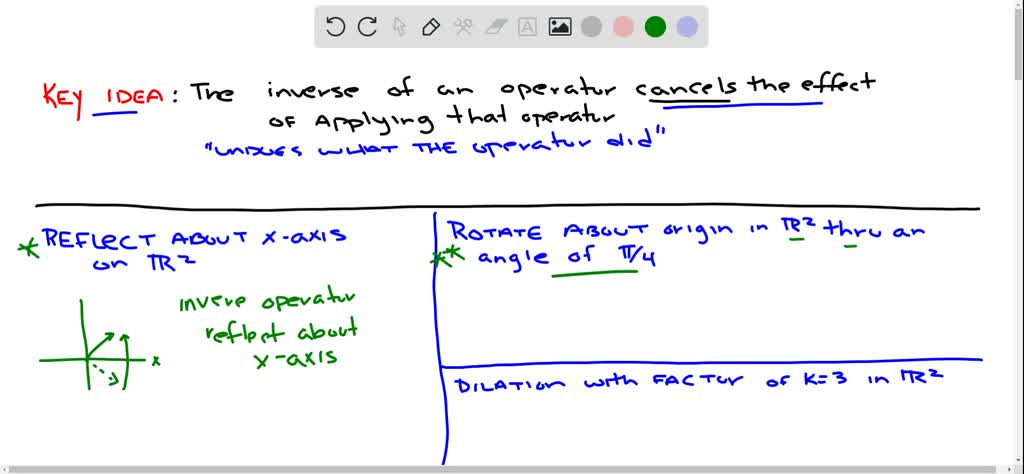 KEY IDEA: The inverse of an operator cancels the effect
of Applying that operator
"UNDOES WHAT THE operator did"
* REFLECT ABOUT X-AXIS
on ℝ2
invere operator
reflect about
x-axis
x
ROTATE ABOUT origin in ℝ² thru an
** angle of π/4
DILATION with FACTOR of K=3 in ℝ²